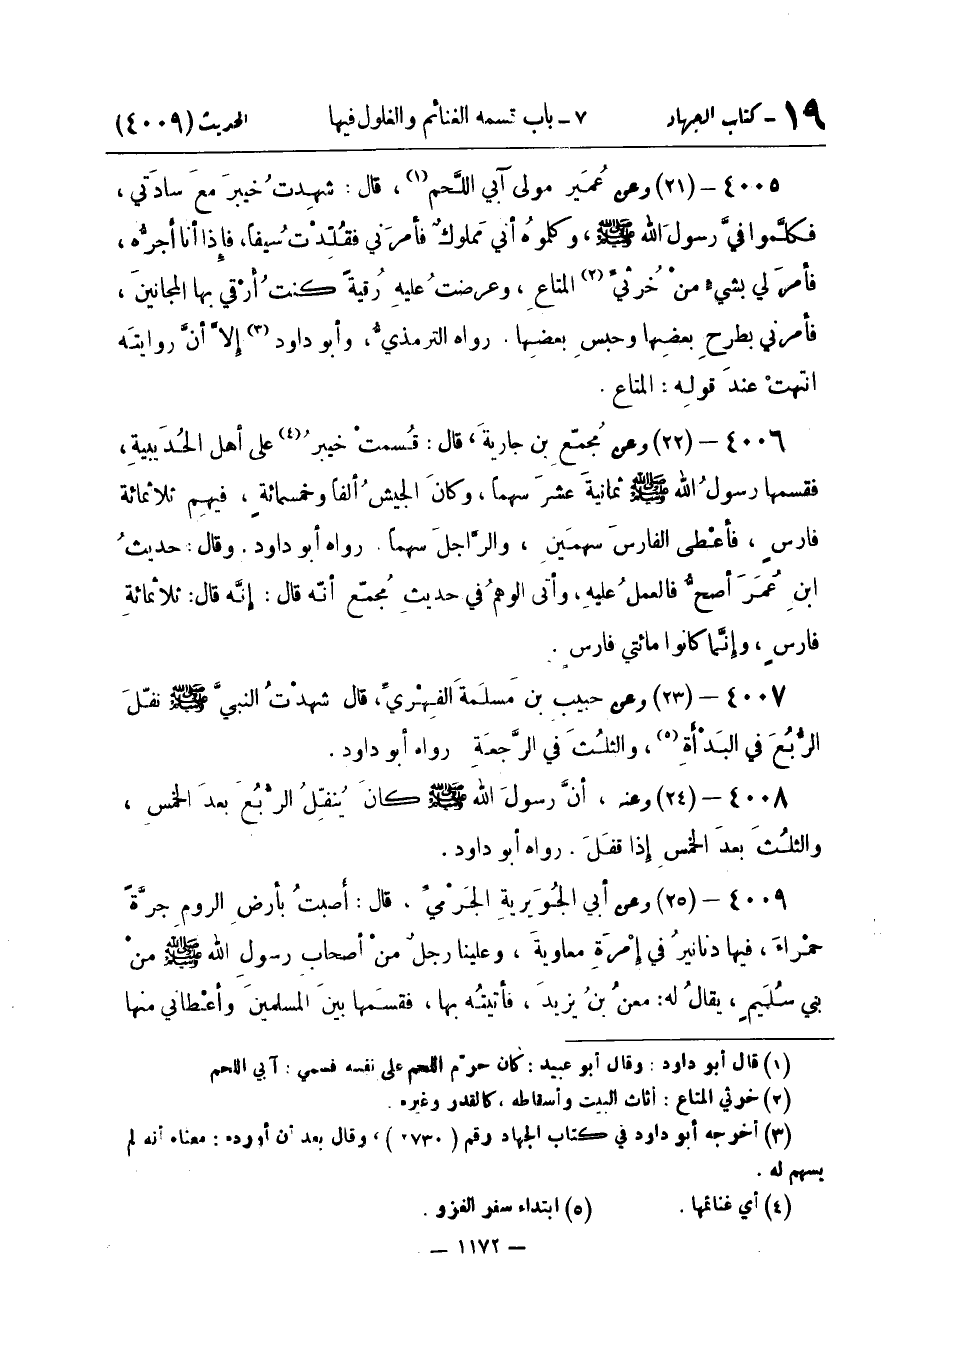 ١٩ - كتاب الجهاد ٧ - باب قسمة الغنائم والغلول فيها الحديث (٤٠٠٩)
٤٠٠٥ - (٢١) وعن عُمَير مولى آبي اللَّحم(١)، قال: شهِدتُ خيبرَ معَ سادَتي،
فكلَّموا فيَّ رسولَ الله ﷺ، وكلموهُ أني مملوكٌ فأمرَني فقُلِّدْتُ سيفاً، فإِذا أنا أجرُّه،
فأمرَ لي بشيءٍ منْ خُرْثيِّ(٢) المتاعِ، وعرضتُ عليهِ رُقيةً كنتُ أرْقي بها المجانينَ،
فأمرني بطرحِ بعضِها وحبسِ بعضِها. رواه الترمذيُّ، وأبو داود(٣) إِلاَّ أنَّ روايتَه
انتهتْ عندَ قوله: المتاع.
٤٠٠٦ - (٢٢) وعن مُجمِّع بن جاريةَ، قال: قُسمتْ خيبرُ(٤) على أهل الحُدَيبيةِ،
فقسمها رسولُ الله ﷺ ثمانيةَ عشرَ سهماً، وكانَ الجيشُ ألفاً وخمسمائةٍ، فيهم ثلاثمائة
فارسٍ، فأعْطى الفارسَ سهمَينِ، والرَّاجلَ سهماً. رواه أبو داود. وقال: حديثُ
ابنِ عُمَرَ أصحُّ فالعملُ عليهِ، وأتى الوهمُ في حديثِ مُجمِّع أنّه قال: إِنَّه قال: ثلاثمائةِ
فارسٍ، وإِنَّما كانوا مائتي فارسٍ.
٤٠٠٧ - (٢٣) وعن حبيبِ بن مَسلَمةَ الفِهْريِّ، قال شهدْتُ النبيَّ ﷺ نفّلَ
الرُّبُعَ في البَدْأةِ(٥)، والثلثَ في الرَّجعَةِ رواه أبو داود.
٤٠٠٨ - (٢٤) وعنه، أنَّ رسولَ الله ﷺ كانَ يُنفِّلُ الرُّبُعَ بعدَ الخمسِ،
والثلُثَ بعدَ الخمسِ إِذا قفَلَ. رواه أبو داود.
٤٠٠٩ - (٢٥) وعن أبي الجُوَيريةِ الجَرْميِّ. قال: أصبتُ بأرضِ الرومِ جرَّةً
حمْراءَ، فيها دنانيرُ في إِمْرَةِ معاويةَ، وعلينا رجلٌ منْ أصحابِ رسولِ الله ﷺ منْ
بني سُلَيمٍ، يقالُ له: معنُ بنُ يزيدَ، فأتيتُه بها، فقسَمها بينَ المسلمينَ وأعْطاني منها
(١) قال أبو داود: وقال أبو عبيد: كان حرّم اللحم على نفسه فسمي: آبي اللحم
(٢) خرثي المتاع: أثاث البيت وأسقاطه، كالقدر وغيره.
(٣) أخرجه أبو داود في كتاب الجهاد رقم (٢٧٣٠)، وقال بعد أن أورده: معناه أنه لم
يسهم له.
(٤) أي غنائمها. (٥) ابتداء سفر الغزو.
— ١١٧٢ —